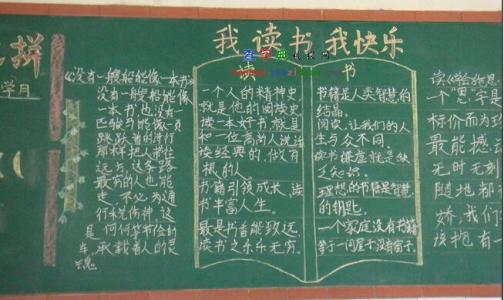 我读书 我快乐
拼
学月
《没有一艘船能像一本书》
没有一艘船能像
一本书,也没有一
匹骏马能像一页
跳跃着的诗行
那样把人带往
远方,这条路
最穷的人也能
走,不必为通
行税伤神,这
是何等节俭的
车,承载着人的灵
魂
读
一个人的精神史
就是他的阅读史
读一本好书,就是
和一位高尚人说话
读经典的,做有
根的人。
书籍引领成长,读
书丰富人生。
最是书香能致远,
读书之乐乐无穷。
书
书籍是人类智慧的
结晶。
阅读,让我们的人
生与众不同。
读书
知识。
理想的书籍是智慧
的钥匙。
一个家庭没有书籍
等于一间房子没有窗子。
读《
一个"思"字
标价而为
最能撼
无时无刻
随地都
娇,我们
该抱有